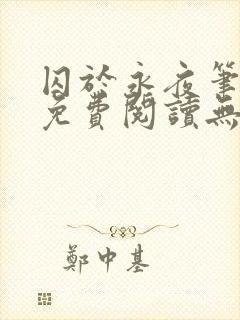 囚於永夜筆
免費閱讀無
鄭中基